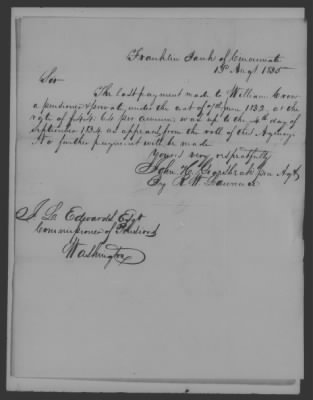 Franklin Bank of Cincinnati
13 Augt 1835
Sir
The last payment made to William Crow
a pensioner & private, under the act of 7th June 1832, at the
rate of $44. per annum, was up to the 4th day of
September 1834 as appears from the roll of this Agency.
No further payment will be made
Yours very respectfully
John H. Pen Agt
By R W Lawrence
J L Edwards Esqr
Commissioner of Pensions
Washington